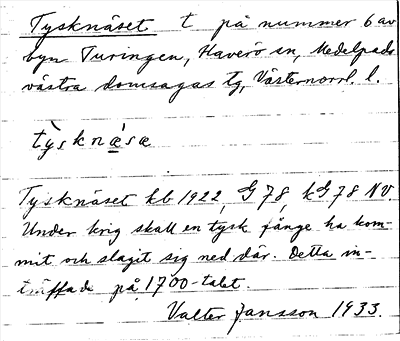 Tysknäset t på nummer 6 av
byn Turingen, Haverö sn, Medelpads
västra domsagas tg, Västernorrl. l.
tỳsknæ̀sæ
Tysknäset kb 1922, G 78, kG 78 NV.
Under krig skall en tysk fånge ha kom-
mit och slagit sig ned där. Detta in-
träffade på 1700-talet.
Valter Jansson 1933.